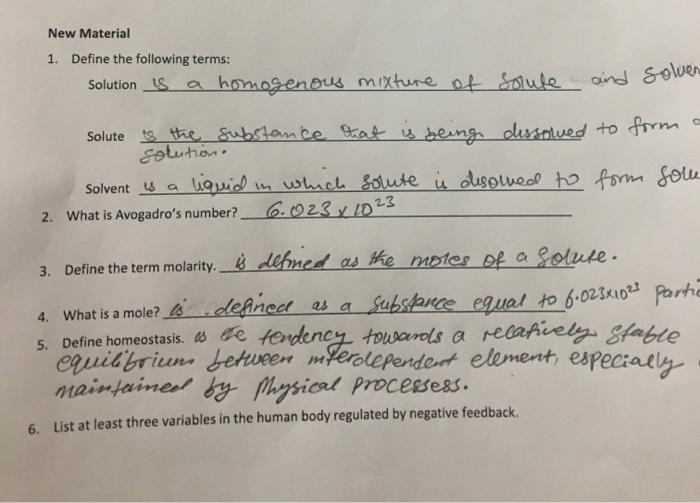 New Material
1. Define the following terms:
Solution is a homogenous mixture of Solute and Solven
Solute is the substance that is being dissolved to form a
solution.
Solvent is a liquid in which solute is disolved to form Solu
2. What is Avogadro's number? 6.023 x 10^23
3. Define the term molarity. is defined as the moles of a Solute.
4. What is a mole? is defined as a substance equal to 6.023x10^23 parti
5. Define homeostasis. as the tendency towards a relatively stable
equilibrium between interdependent element, especially
maintained by Physical processess.
6. List at least three variables in the human body regulated by negative feedback.